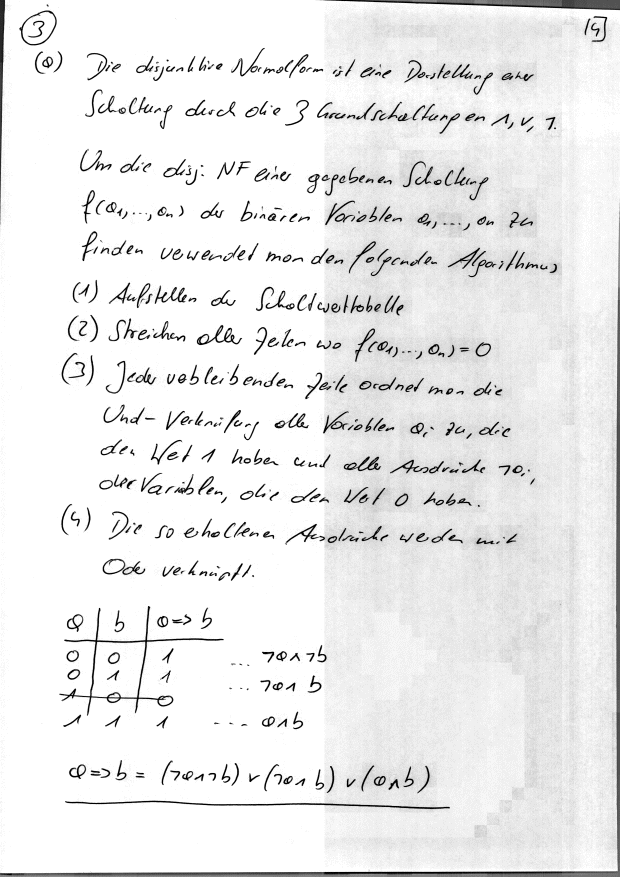 3
15
(a) Die disjunktive Normalform ist eine Darstellung einer
Schaltung durch die 3 Grundschaltungen ∧, ∨, ¬.
Um die disj. NF einer gegebenen Schaltung
f(a₁,...,aₙ) der binären Variablen a₁,...,aₙ zu
finden verwendet man den folgenden Algorithmus
(1) Aufstellen der Schaltwerttabelle
(2) Streichen aller Zeilen wo f(a₁,...,aₙ)=0
(3) Jeder verbleibenden Zeile ordnet man die
Und-Verknüpfung aller Variablen aᵢ zu, die
den Wert 1 haben und aller Ausdrücke ¬aᵢ,
der Variablen, die den Wert 0 haben.
(4) Die so erhaltenen Ausdrücke werden mit
Oder verknüpft.
a | b | a=>b
0 | 0 | 1 ... ¬a∧¬b
0 | 1 | 1 ... ¬a∧b
1 | 0 | 0
1 1 1 .... a∧b
a=>b = (¬a∧¬b)∨(¬a∧b)∨(a∧b)